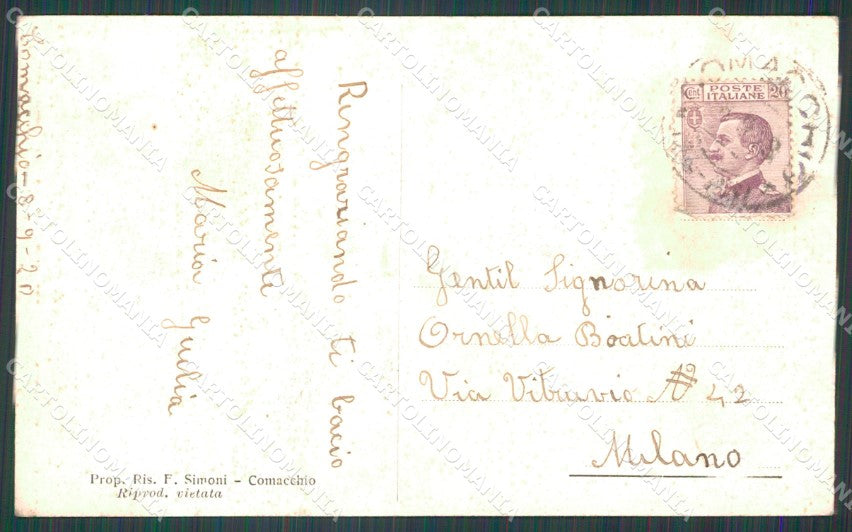 Comacchio - 8-9-20
Ringraziando ti bacio
affettuosamente
Maria Giulia
Prop. Ris. F. Simoni - Comacchio
Riprod. vietata
POSTE
ITALIANE
Cent 20
Gentil Signorina
Ornella Boatini
Via Vitruvio No 42
Milano
CARTOLINOMANIA